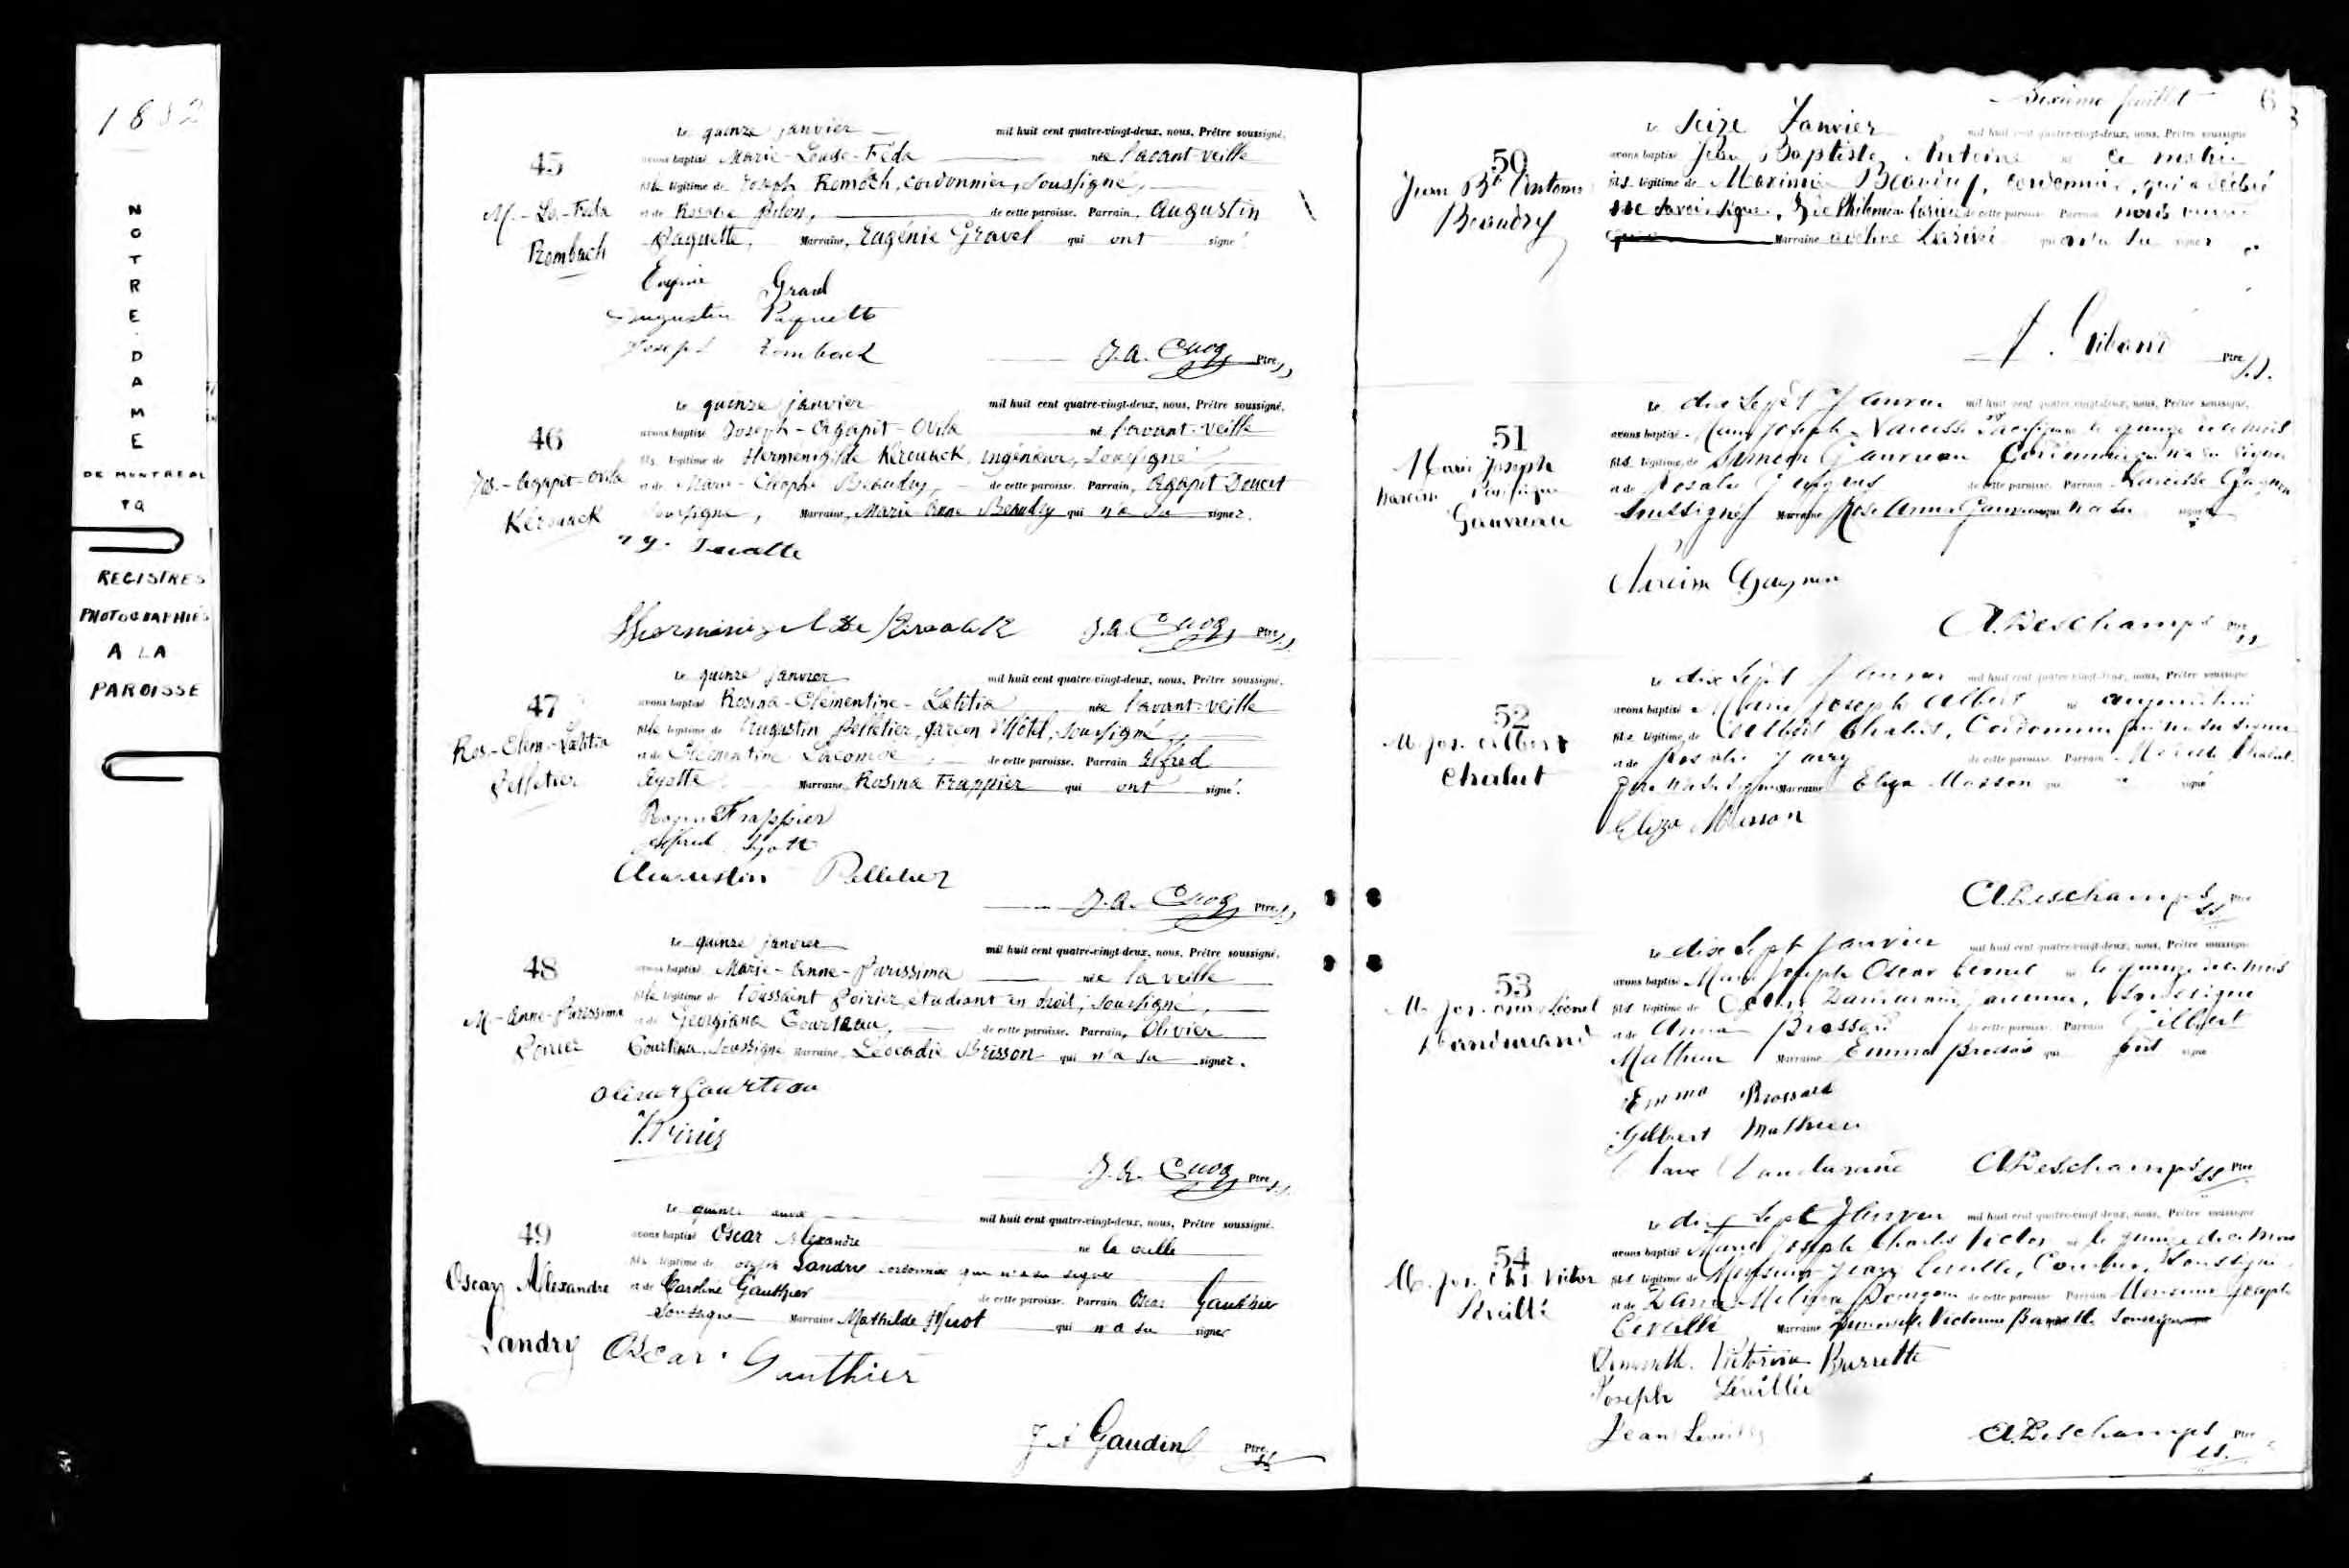 1882
NOTRE-DAME
DE MONTREAL
PQ
REGISTRES
PHOTOGRAPHIÉS
A LA
PAROISSE
Le quinze janvier mil huit cent quatre-vingt-deux, nous, Prêtre soussigné,
45
avons baptisé Marie-Louise-Féda née l'avant-veille
fille légitime de Joseph Rombach, cordonnier, soussigné,
M.-Ls.-Féda
et de Rosalie Pilon, de cette paroisse. Parrain, Augustin
Rombach
Paquette, Marraine, Eugénie Gravel qui ont signé.
Eugénie Gravel
Augustin Paquette
Joseph Rombach
J.A. Cuoq Ptre S.S.
Le quinze janvier mil huit cent quatre-vingt-deux, nous, Prêtre soussigné,
46
avons baptisé Joseph-Agapit-Ovila né l'avant-veille
fils légitime de Herménigilde Kérouack, ingénieur, soussigné
Jos.-Agapit-Ovila
et de Marie-Cléophé Beaudry, de cette paroisse. Parrain, Agapit Doucet
Kérouack
soussigné, Marraine, Marie Anne Beaudry qui n'a su signer.
J.A. Cuoq Ptre S.S.
Le quinze janvier mil huit cent quatre-vingt-deux, nous, Prêtre soussigné,
47
avons baptisé Rosina-Clémentine-Lætitia née l'avant-veille
fille légitime de Augustin Pelletier, garçon d'Hôtel, soussigné
Ros-Clem-Lætitia
et de Clémentine Lacombe, de cette paroisse. Parrain Alfred
Pelletier
Ayotte Marraine, Rosina Frappier qui ont signé.
Rosina Frappier
Alfred Ayotte
Augustin Pelletier
J.A. Cuoq Ptre S.S.
Le quinze janvier mil huit cent quatre-vingt-deux, nous, Prêtre soussigné,
48
avons baptisé Marie-Anne-Purissima née la veille
fille légitime de Toussaint Poirier, étudiant en droit, soussigné,
M.-Anne-Purissima
et de Georgiana Courteau, de cette paroisse. Parrain, Olivier
Poirier
Courteau, soussigné Marraine, Léocadie Brisson qui n'a su signer.
Olivier Courteau
T. Poirier
J.A. Cuoq Ptre S.S.
Le quinze mil huit cent quatre-vingt-deux, nous, Prêtre soussigné.
49
avons baptisé Oscar Alexandre né la veille
fils légitime de Joseph Landry cordonnier qui n'a su signer
Oscar Alexandre
et de Caroline Gauthier de cette paroisse. Parrain Oscar Gauthier
Landry
soussigné Marraine Mathilde Huot qui n'a su signer
Oscar Gauthier
J A Gaudin Ptre S.S.
Sixième feuillet 6
Le Seize Janvier mil huit cent quatre-vingt-deux, nous, Prêtre soussigné
50
avons baptisé Jean Baptiste Antoine né ce matin
Jean Bte Antoine
fils légitime de Maxime Beaudry, cordonnier, qui a déclaré
Beaudry
ne savoir signer, & de Philomène Larivé de cette paroisse Parrain
Marraine Larivé su signer
Ptre S.S.
Le dix Sept Janvier mil huit cent quatre-vingt-deux, nous, Prêtre soussigné,
51
avons baptisé Marie Joseph Narcisse né le quinze de ce mois
Marie Joseph
fils légitime de Siméon Gauvreau Cordonnier qui n'a su signer
Narcisse
et de Rosalie de cette paroisse. Parrain Narcisse Gagnon
Gauvreau
soussigné Marraine Rose Anna Gauvreau qui n'a su signer
Narcisse Gagnon
A. Deschamps Ptre SS
Le dix Sept Janvier mil huit cent quatre-vingt-deux, nous, Prêtre soussigné
52
avons baptisé Marie Joseph Albert né aujourd'hui
M. Jos. Albert
fils légitime de Albert Chalut, Cordonnier qui n'a su signer
Chalut
et de Rosalie de cette paroisse Parrain Chalut
qui n'a su signer Marraine Eliza Masson qui a signé
Eliza Masson
A. Deschamps SS Ptre
Le dix Sept Janvier mil huit cent quatre-vingt-deux, nous, Prêtre soussigné
53
avons baptisé Marie Joseph Oscar Léonel né le quinze de ce mois
M. Jos. Oscar Léonel
fils légitime de Dandurand, soussigné
Dandurand
et de Anna Brossard de cette paroisse Parrain Gilbert
Mathieu Marraine Emma Brossard qui ont signé
Emma Brossard
Gilbert Mathieu
Dandurand A. Deschamps SS Ptre
Le dix Sept Janvier mil huit cent quatre-vingt-deux, nous, Prêtre soussigné
54
avons baptisé Marie Joseph Charles Victor né le quinze de ce mois
M. Jos. Chs. Victor
fils légitime de Monsieur Jean Léveillé, soussigné
Léveillé
et de Dame de cette paroisse Parrain Monsieur Joseph
Léveillé Marraine Demoiselle Victorine Barrette soussigné
Demoiselle Victorine Barrette
Joseph Léveillée
Jean Léveillé
A. Deschamps Ptre SS.